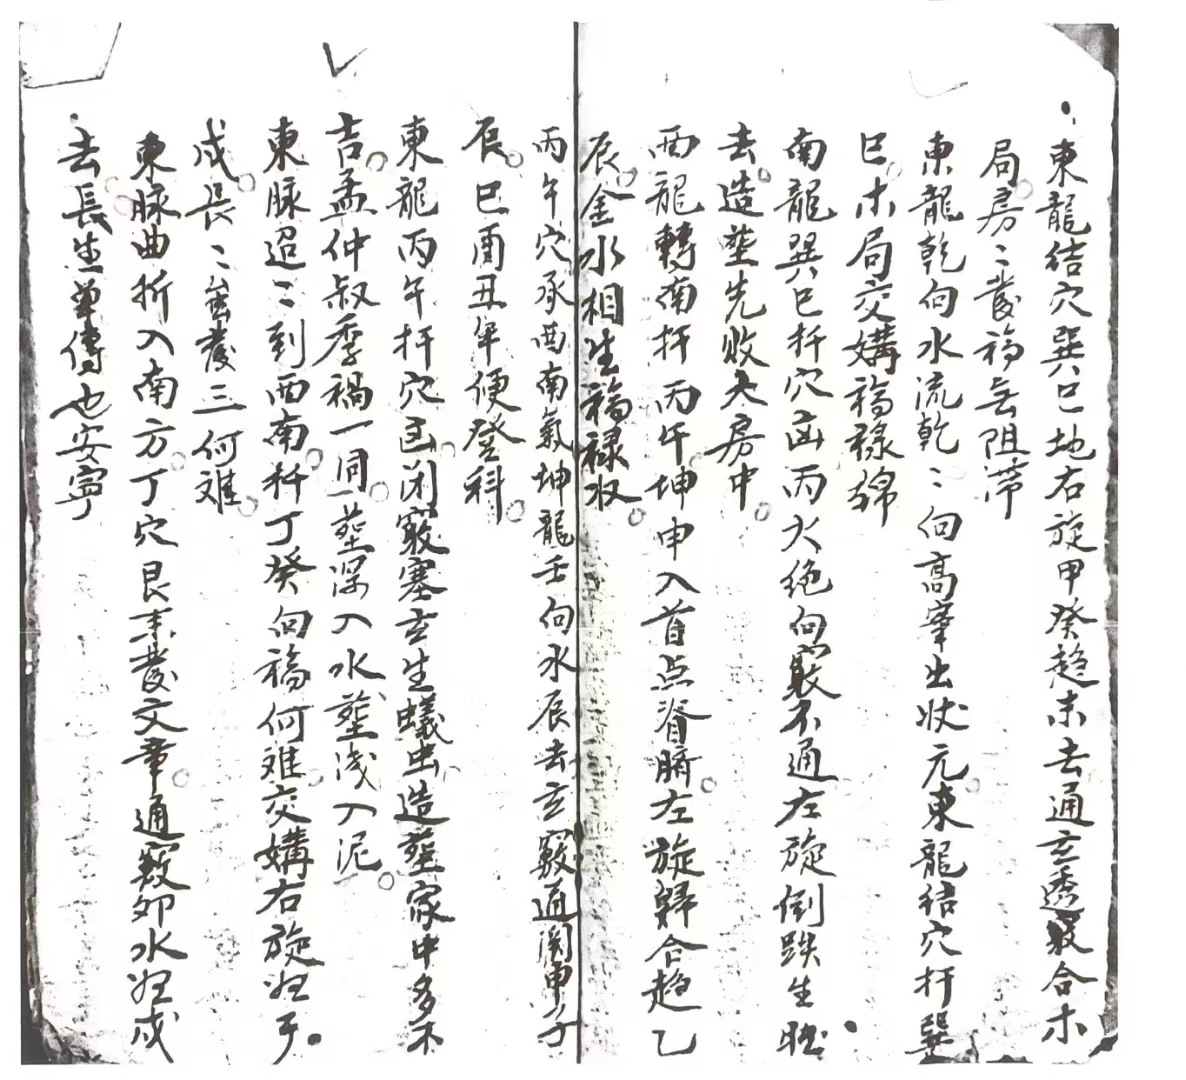 東龍结穴巽巳地右旋甲癸趋未去通玄透竅合木
局房〻發福无阻滞
東龍乾向水流乾〻向高峯出状元東龍结穴扦巽
巳木局交媾福禄綿
南龍巽巳扦穴凶丙火绝向竅不通左旋倒跌生
去造塋先败大房中
西龍轉南扦丙午坤申入首点脊臍左旋歸合趋乙
辰金水相生福禄收
丙午穴承西南氣坤龍壬向水辰去玄竅通関申子
辰巳酉丑年便登科
東龍丙午扦穴凶闭竅塞玄生蟻虫造塋家中多不
吉孟仲叔季禍一同塋深入水塋浅入泥
東脉迢〻到西南扦丁癸向福何难交媾右旋归于
戍长〻發三何难
東脉曲折入南方丁穴艮未發文章通竅卯水归戍
去長生单傳也安寧